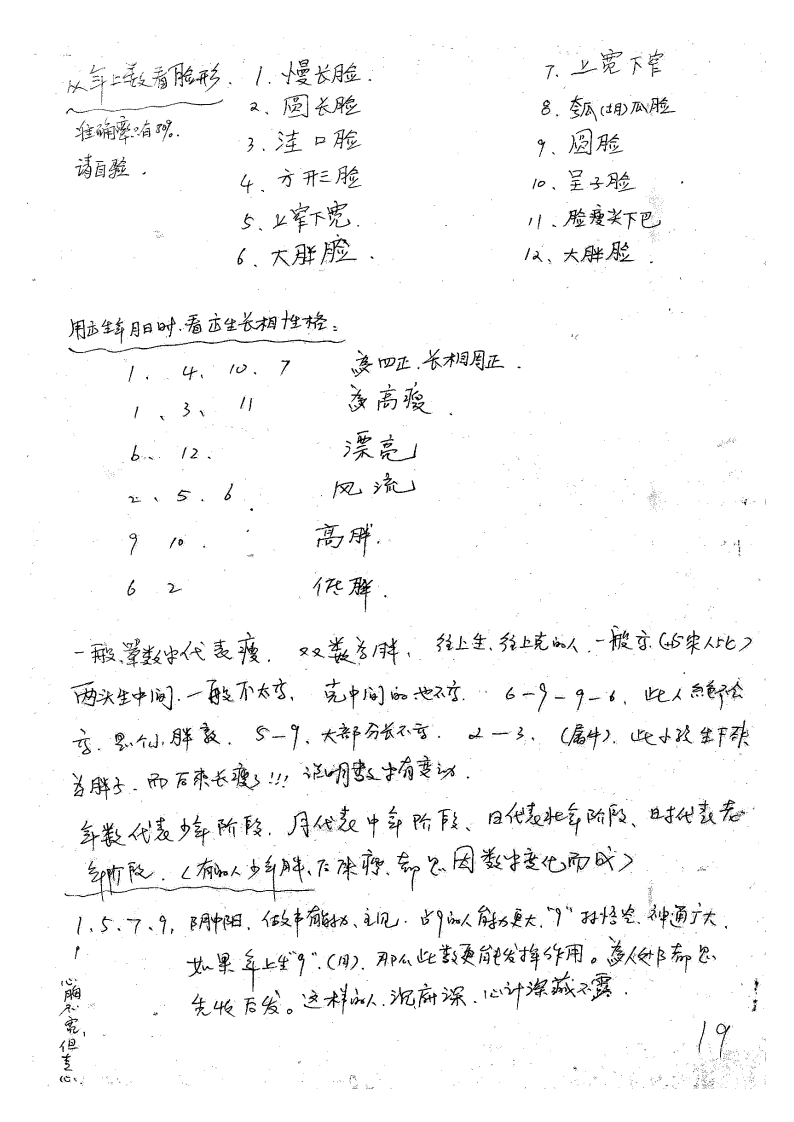 从年上数看脸形.
准确率只有80%.
请自验.
1. 慢长脸.
2、圆长脸
3. 洼口脸
4、方形脸
5、上窄下宽.
6、大胖脸.
7. 上宽下窄
8. 瓜脸
9、圆脸
10、呈子脸
11、脸瘦尖下巴
12、大胖脸.
用出生年月日时.看出生长相性格:
1、4、10、7 四正.长相周正.
1、3、11 高瘦.
6、12. 漂亮
2、5、6. 风流
9 10. 高胖.
6 2 低胖.
一般、单数字代表瘦. 双数为胖、往上生、往上克的人.一般高
两头生中间.一般不太高, 克中间的也不高. 6-9-9-6、此人绝不会
高.是个小胖敦. 5-9、大部分长不高. 2-3、(属牛).此小孩生下来
为胖子.而后来长瘦了!!!说明数字有变动.
年数代表少年阶段、月代表中年阶段、日代表壮年阶段、时代表老
年阶段.(有的人少年胖、后来瘦、都是因数字变化而成)
1、5、7、9, 阴中阳、做事有能力、主见.占9的人能力更大."9"孙悟空.神通广大.
如果年上生"9".(月).那么此数更能发挥作用。为人处事都是
先收后发。这样的人.沉府深、心计深藏不露.
心胸不宽,但专心.
19